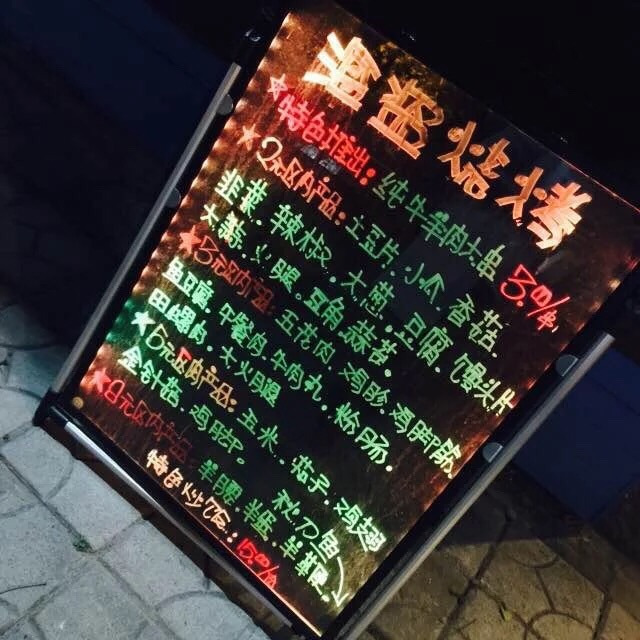 烧烤
特色推出：纯牛羊肉大串 3元/串
2元区内产品：土豆片、小瓜、香菇、
韭菜、辣椒、大葱、豆腐、馒头片
大蒜、火腿、豆角、蒜苔。
3元区内产品：五花肉、鸡胗、鸡
鱼豆腐、午餐肉、牛肉丸、粉肠。
田螺肉、大火腿
5元区内产品：玉米、茄子、鸡翅
金针菇、鸡 秋刀鱼
元区内产品：羊腿
特色炒 15元/